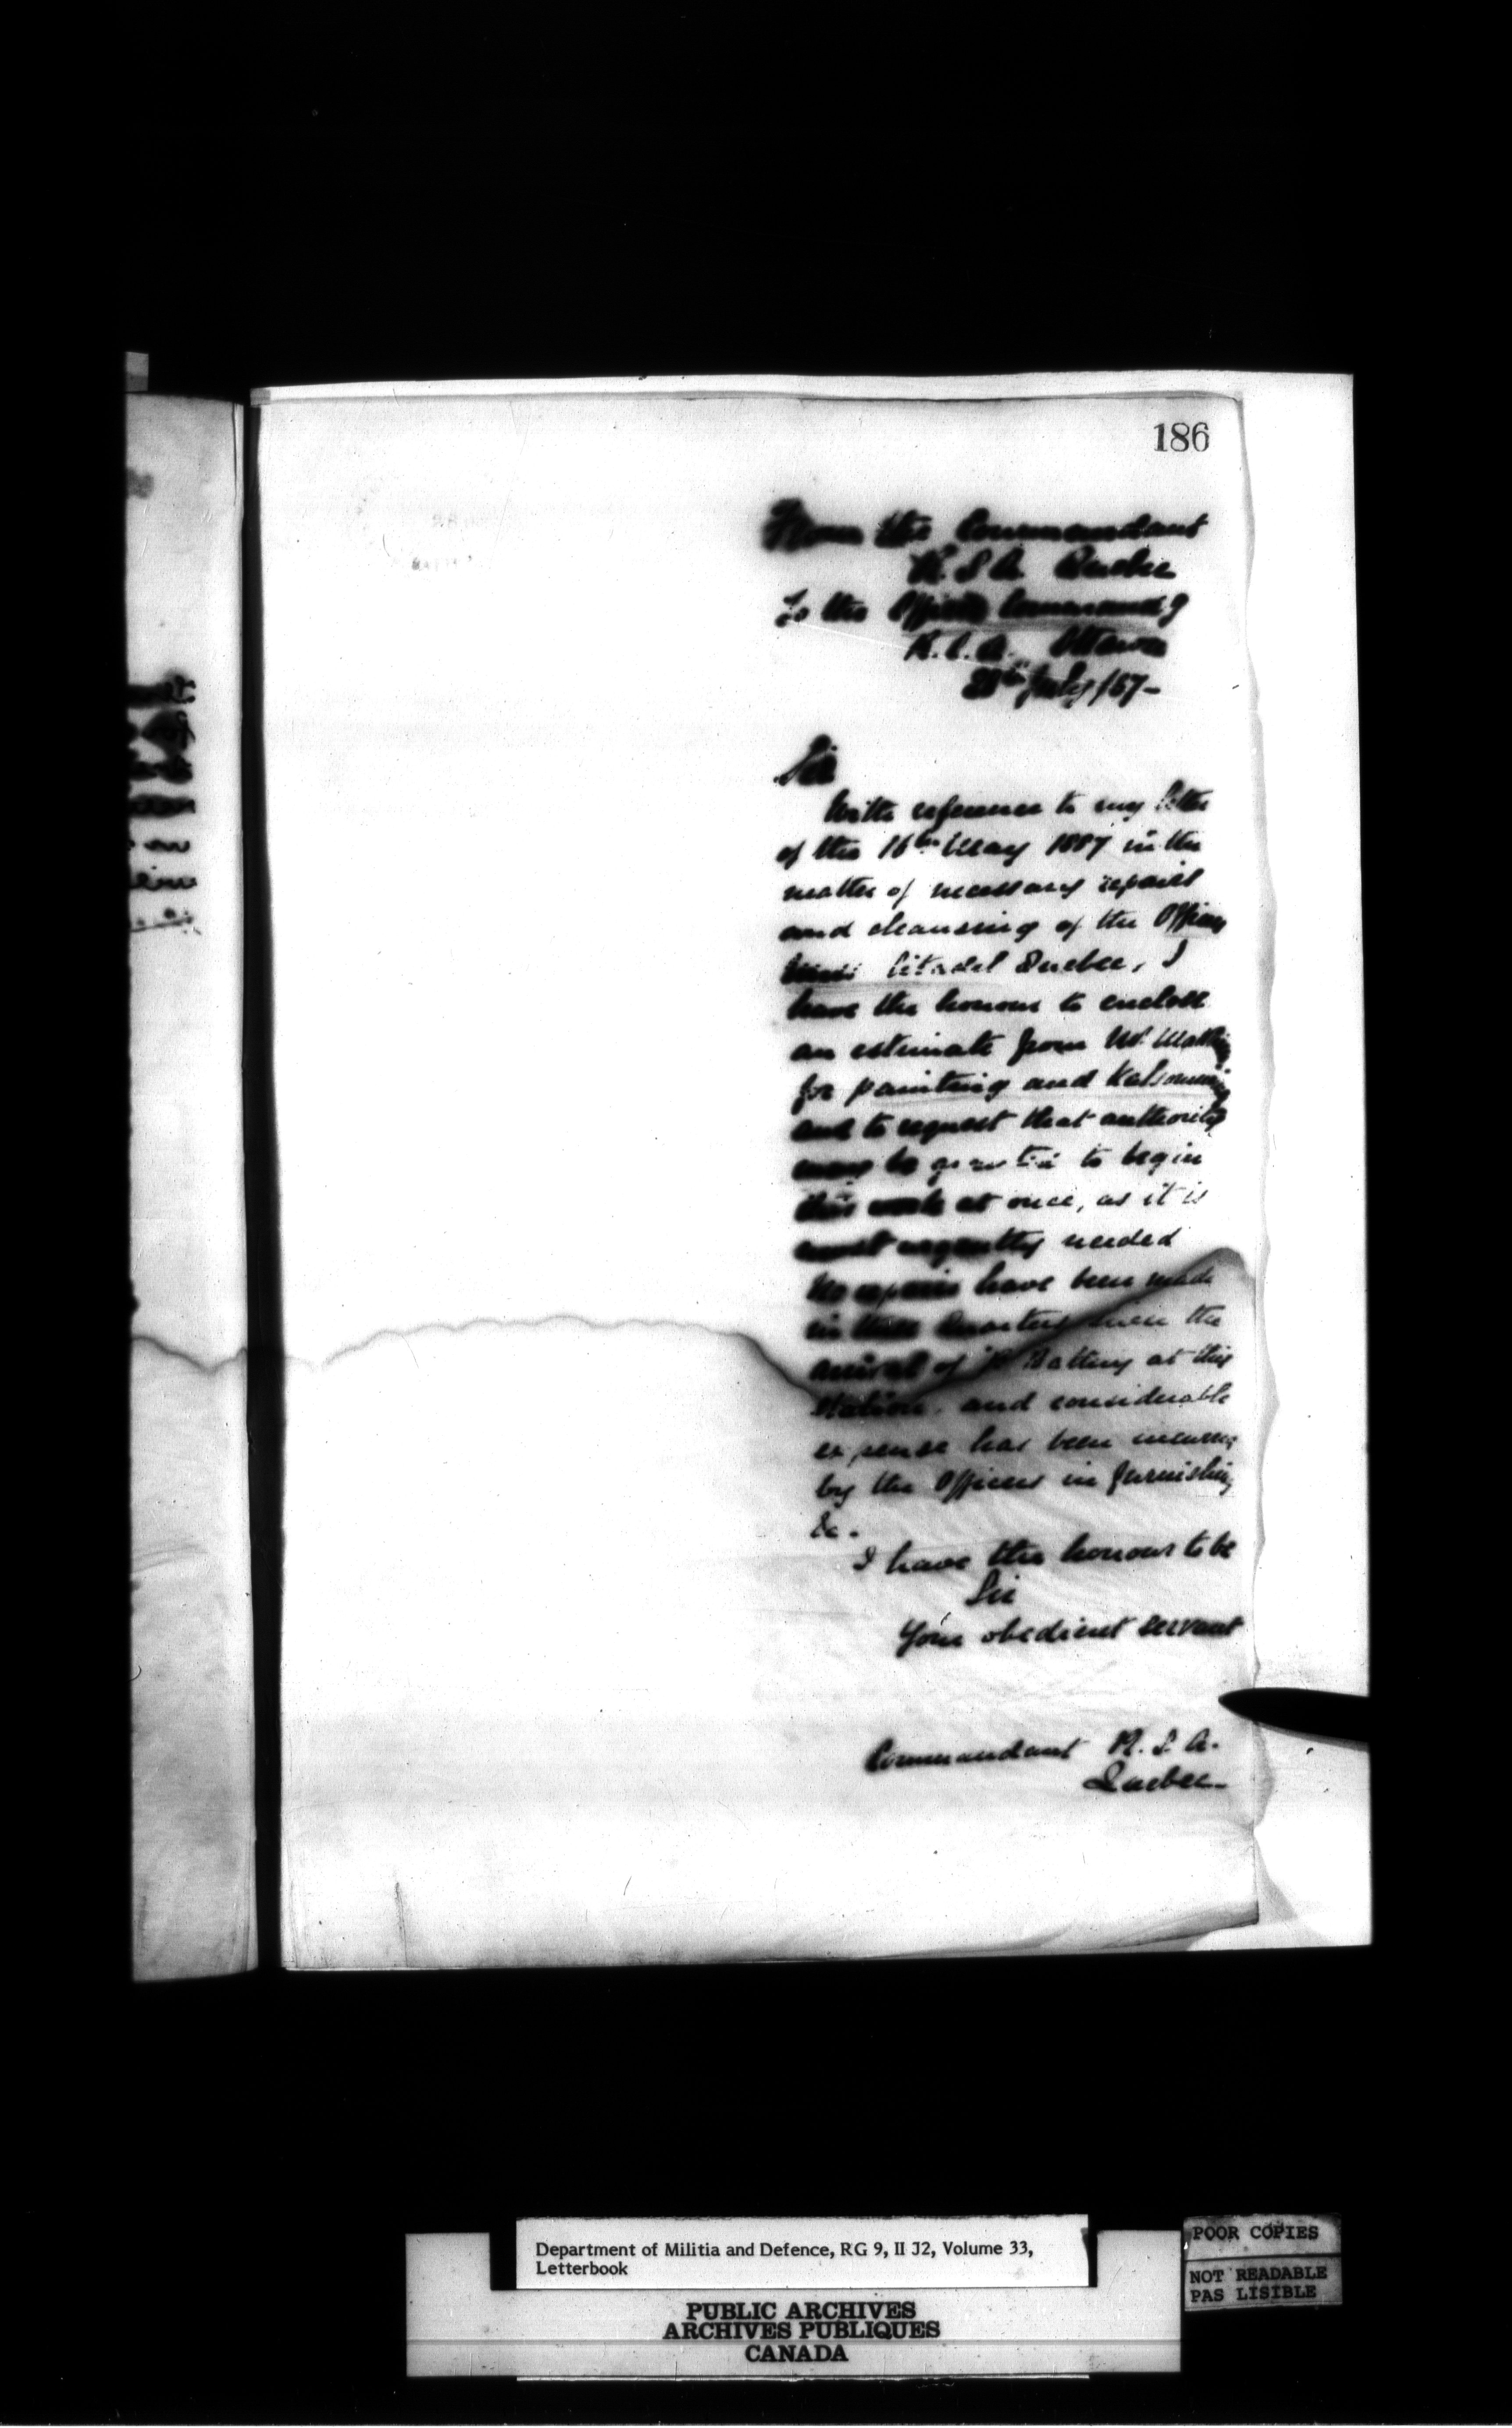 186
From the Commandant
R.S.A. Quebec
To the Officer Command'g
R.C.A. Ottawa
July /87-
Sir
With reference to my letter
of the 16th May 1887 in the
matter of necessary repairs
and cleansing of the Officers
Citadel Quebec, I
have the honour to enclose
an estimate from
for painting and Kalsomining
and to request that authority
may be granted to begin
this work at once, as it is
most urgently needed
No repairs have been made
in these Quarters since the
arrival of Battery at this
Station, and considerable
expense has been incurred
by the Officers in furnishing
&c.
I have the honour to be
Sir
Your obedient servant
Commandant R.S.A.
Quebec-
Department of Militia and Defence, RG 9, II J2, Volume 33,
Letterbook
PUBLIC ARCHIVES
ARCHIVES PUBLIQUES
CANADA
POOR COPIES
NOT READABLE
PAS LISIBLE